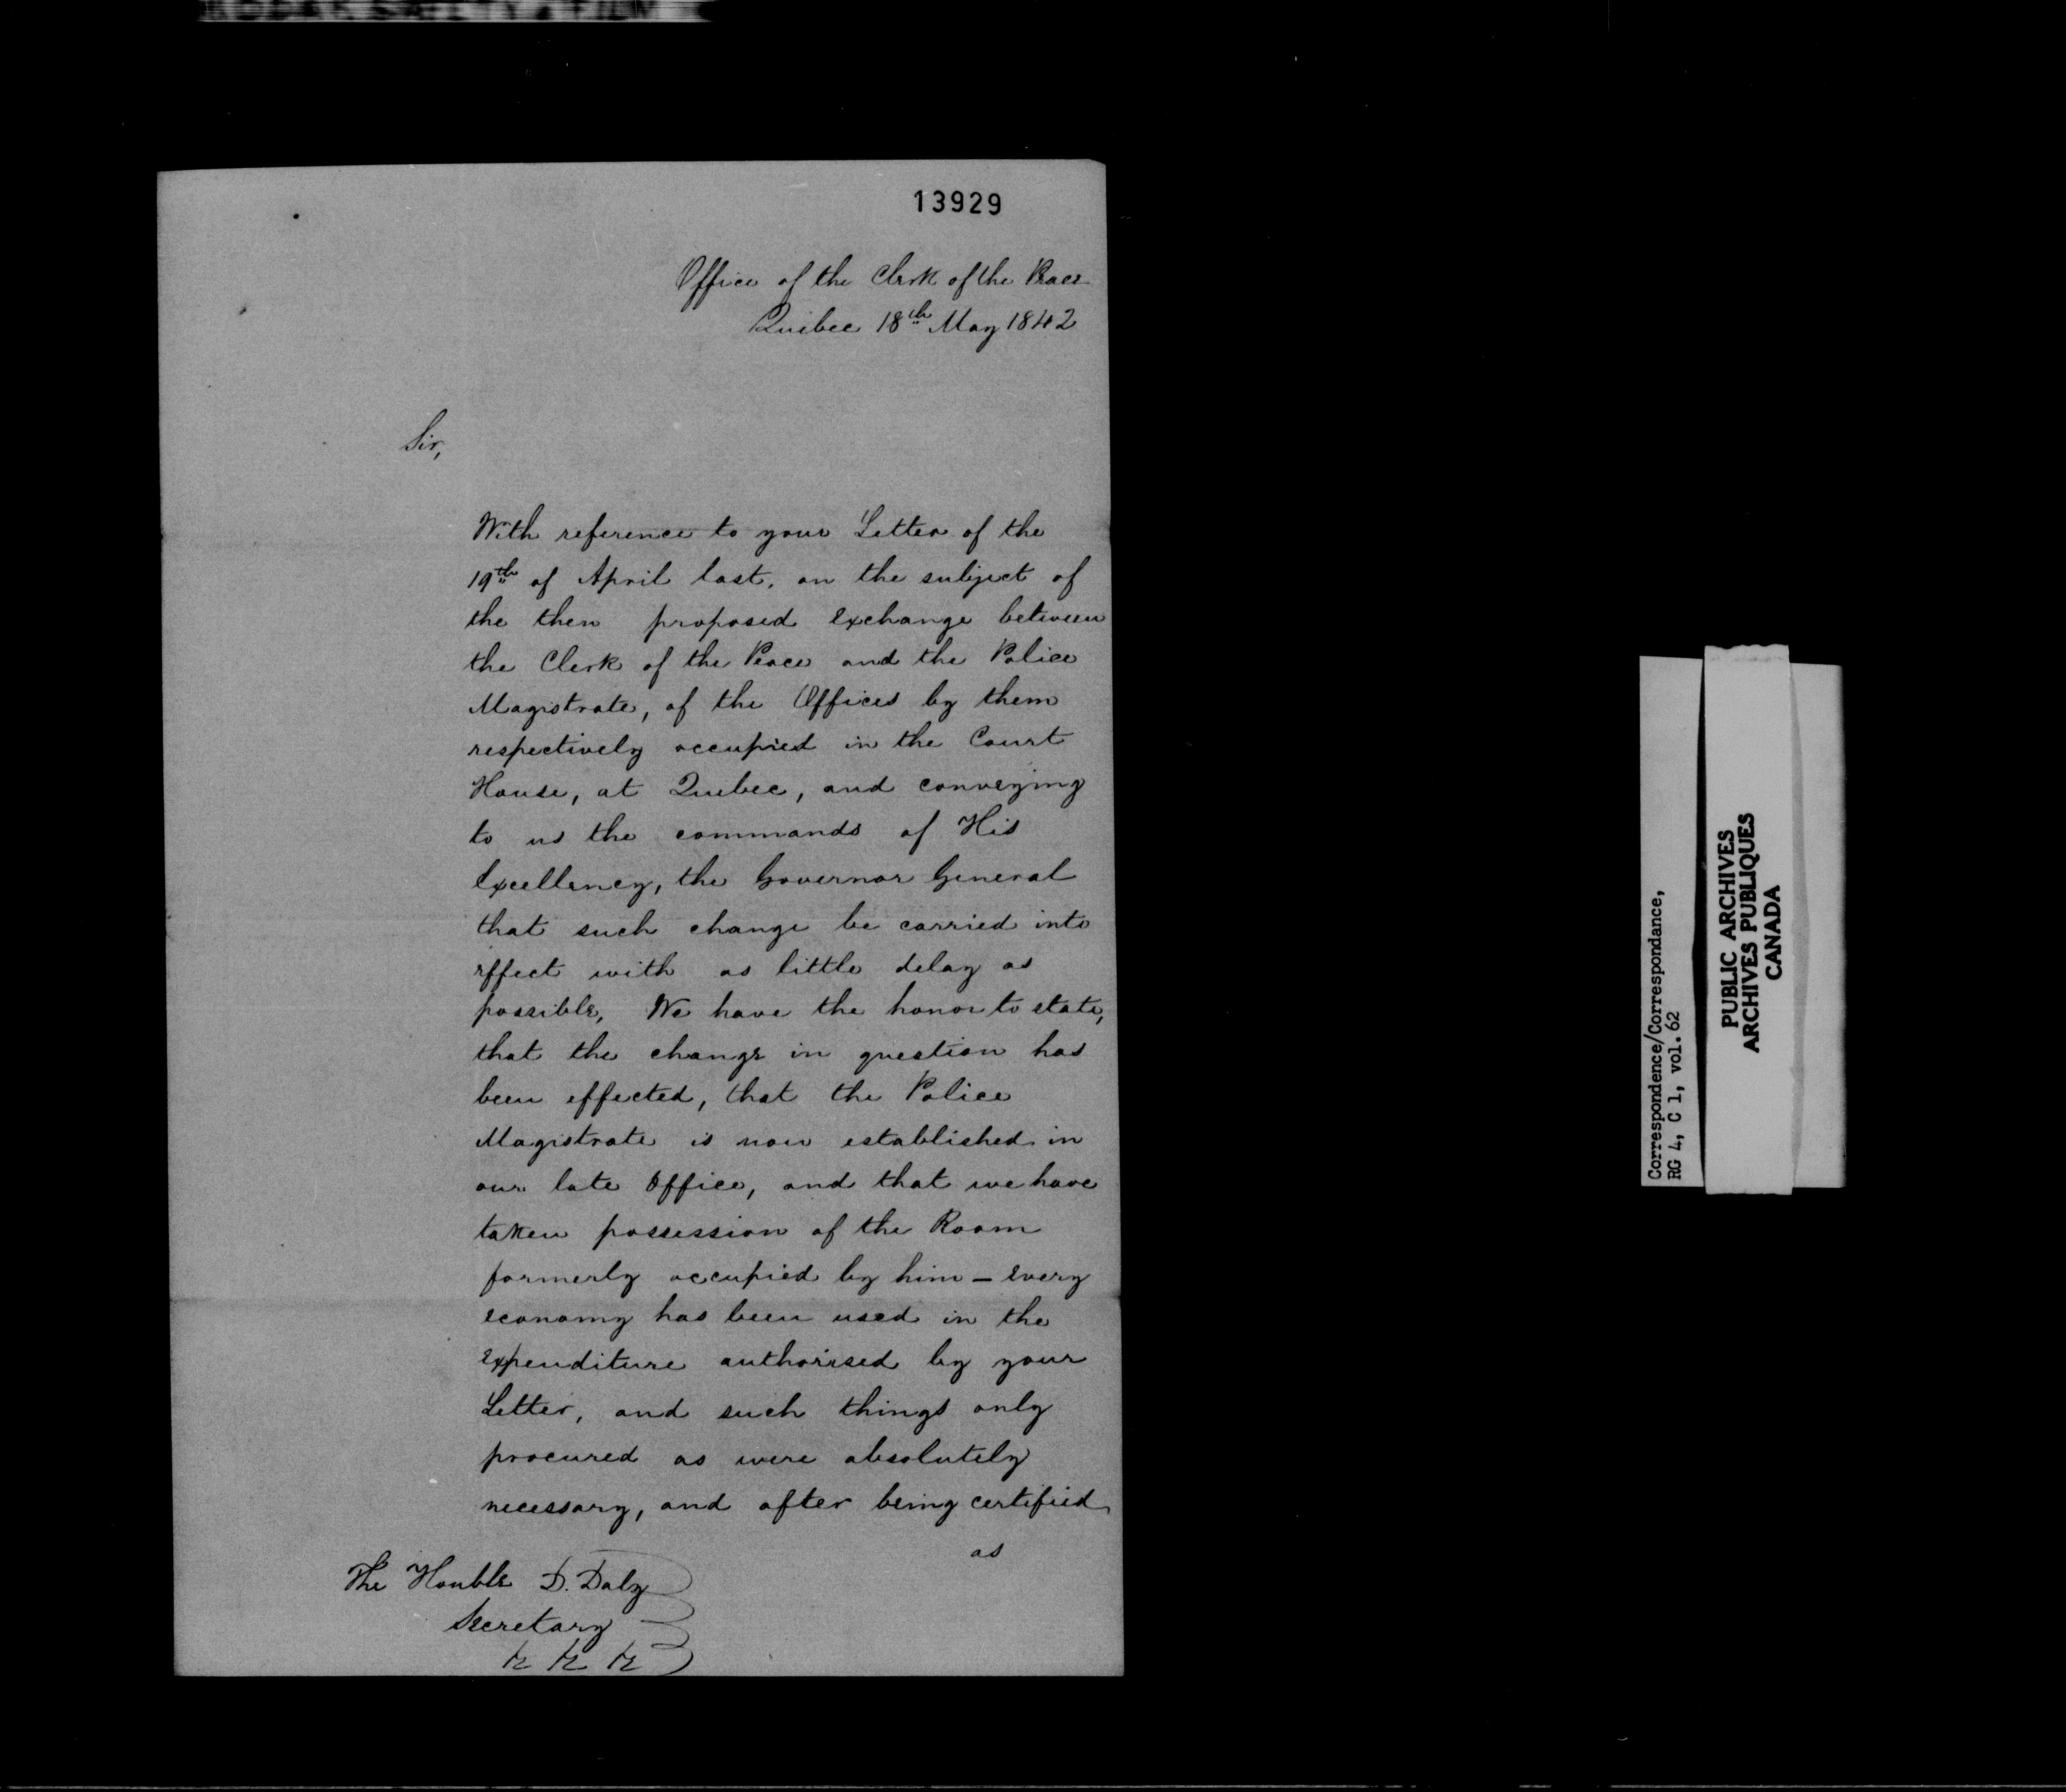 13929
Office of the Clerk of the Peace
Quebec 18th May 1842
Sir,
With reference to your Letter of the
19th of April last, on the subject of
the then proposed Exchange between
the Clerk of the Peace and the Police
Magistrate, of the Offices by them
respectively occupied in the Court
House, at Quebec, and conveying
to us the commands of His
Excellency, the Governor General
that such change be carried into
effect with as little delay as
possible, We have the honor to state,
that the change in question has
been effected, that the Police
Magistrate is now established in
our late Office, and that we have
taken possession of the Room
formerly occupied by him — Every
economy has been used in the
Expenditure authorised by your
Letter, and such things only
procured as were absolutely
necessary, and after being certified
as
The Honble D. Daly
Secretary
&c &c &c
Correspondence/Correspondance,
RG 4, C 1, vol. 62
PUBLIC ARCHIVES
ARCHIVES PUBLIQUES
CANADA